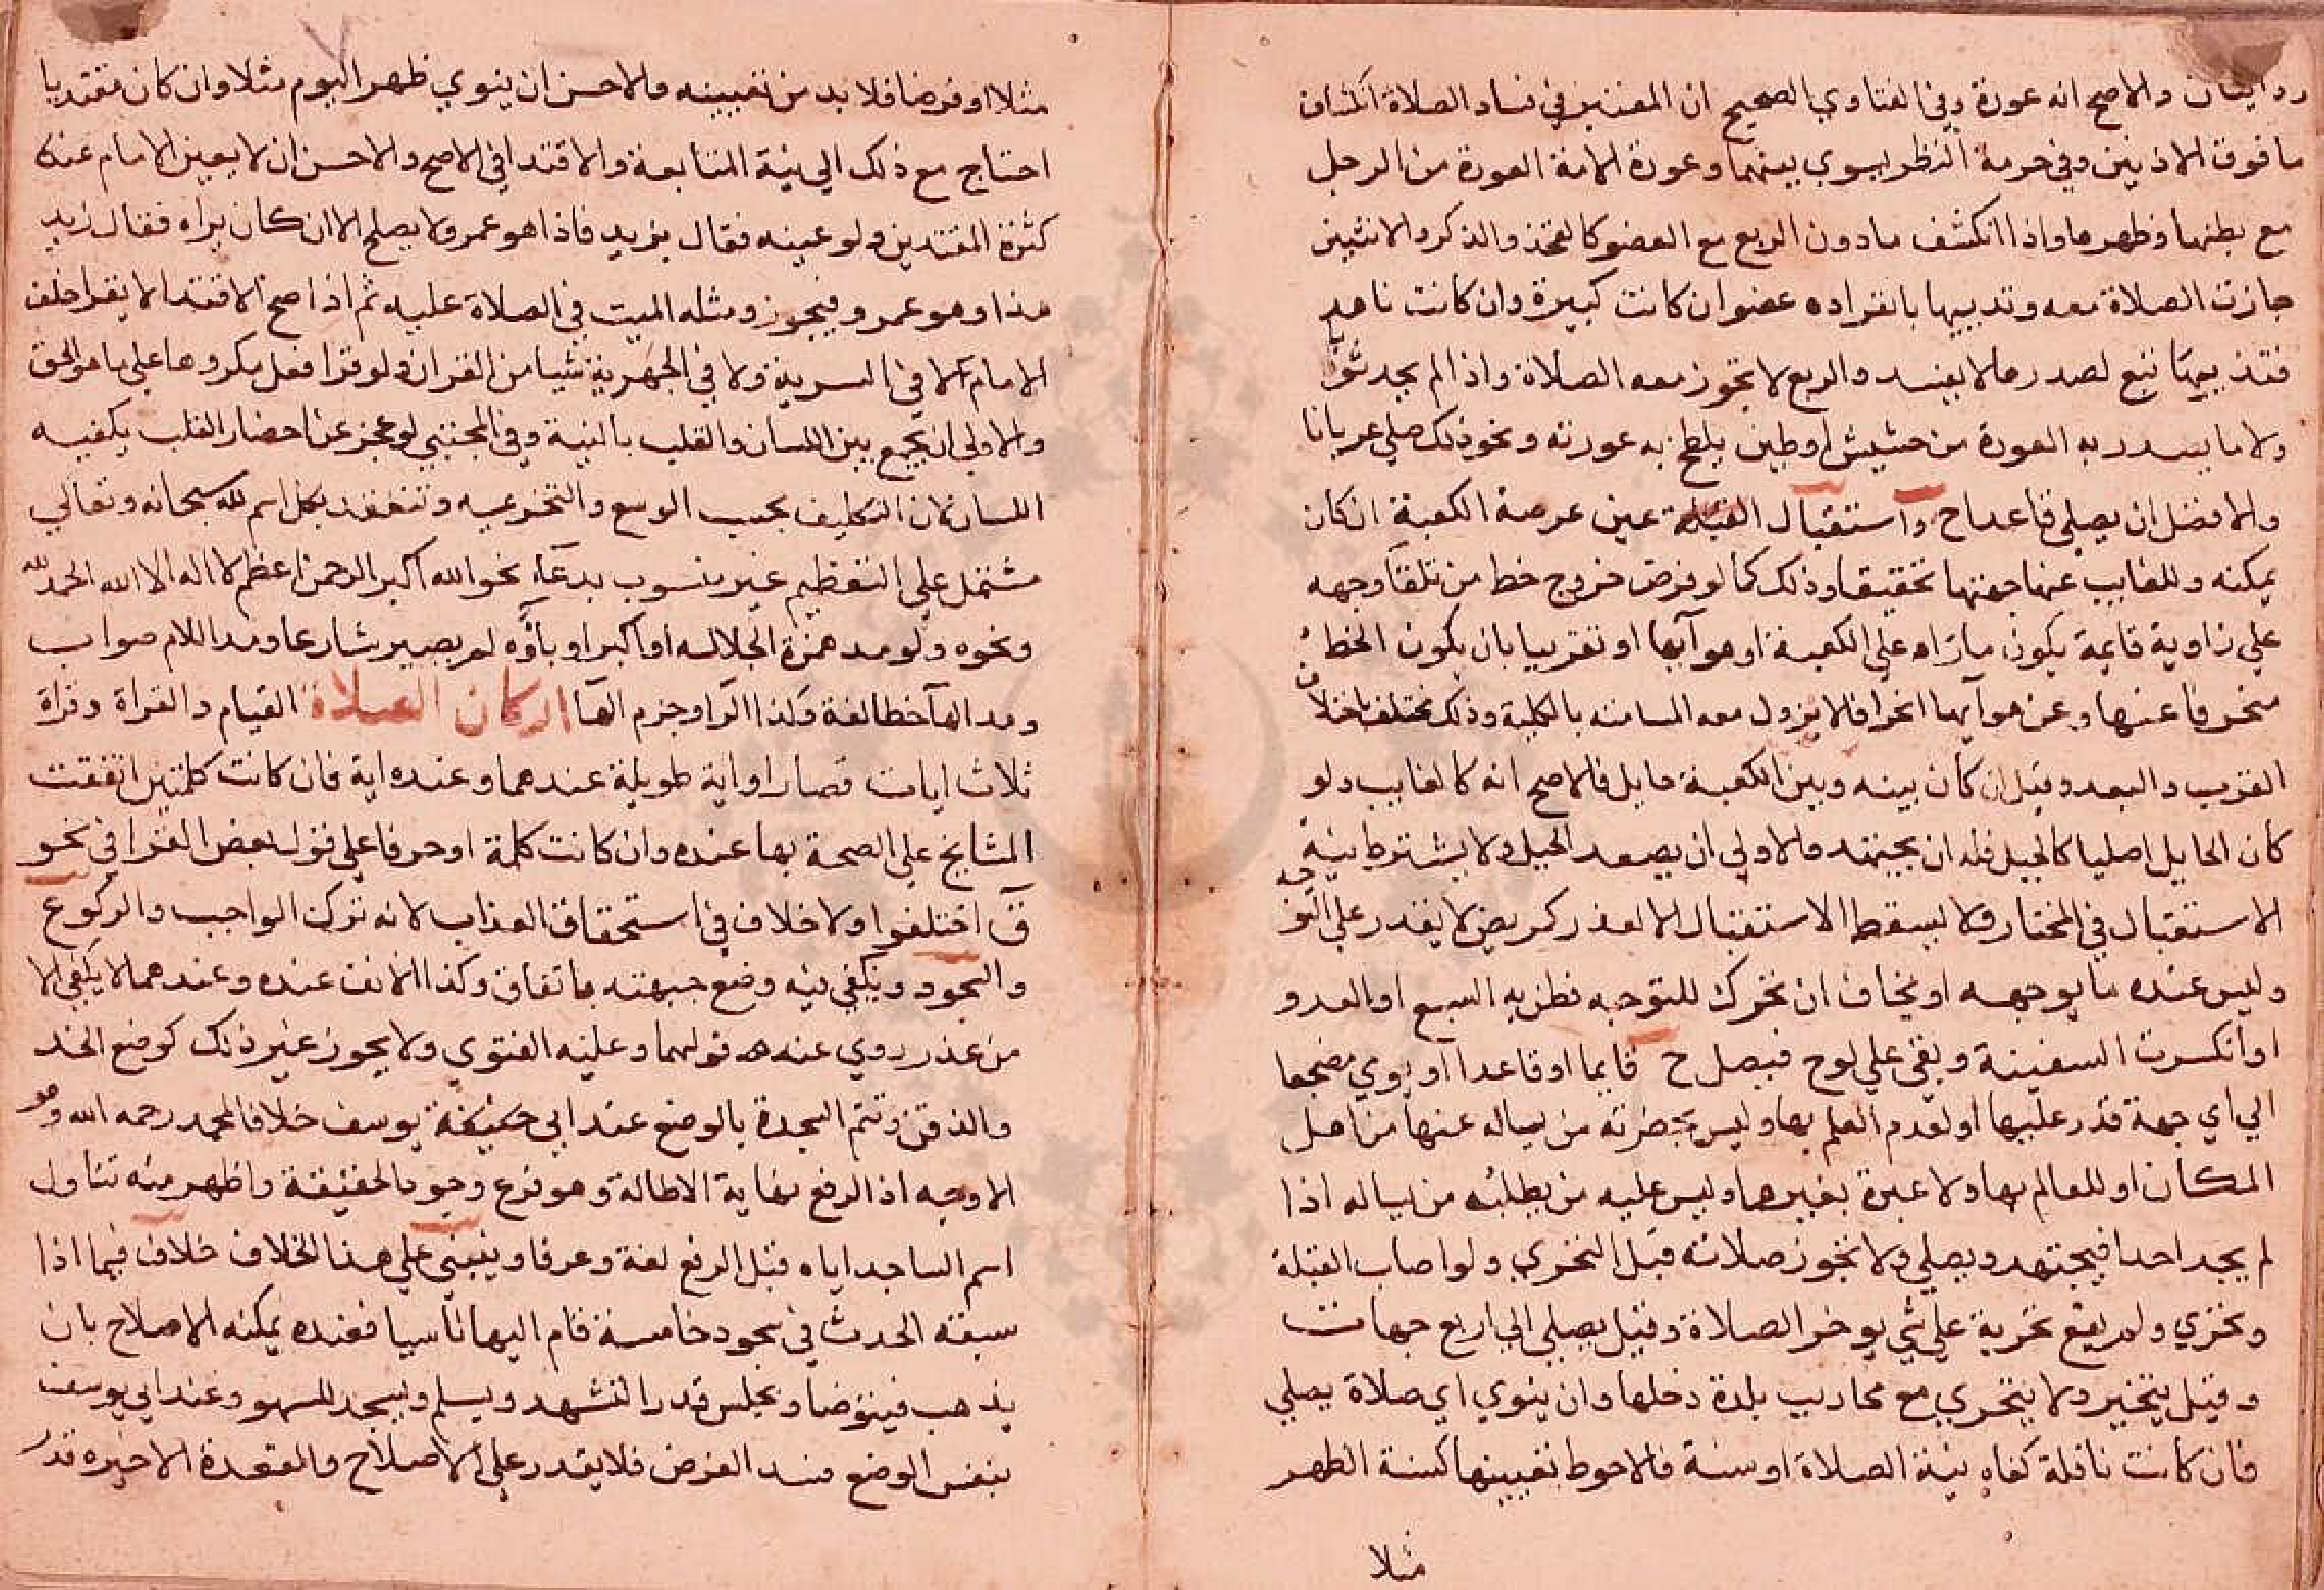 روايتان والاصح انه عورة وفي الفتاوي الصحيح ان المعتبر في فساد الصلاة انكشاف
ما فوق الاذنين وفي حرمة النظر يسوي بينهما وعورة الامة العورة من الرجل
مع بطنها وظهرها واذا انكشف ما دون الربع مع العضو كالفخذ والذكر والانثيين
جازت الصلاة معه وثدييها بانفراده عضو ان كانت كبيرة وان كانت ناهد
فثدييها تبع لصدرها لا يفسد والربع لا تجوز معه الصلاة واذا لم يجد ثوبا
ولا ما يسد به العورة من حشيش او طين يلطخ به عورته ونحو ذلك صلي عريانا
والافضل ان يصلي قاعدا ح واستقبال القبلة عين عرصة الكعبة ان كان
يمكنه وللغايب عنها جهتها تحقيقا وذلك كما لو فرض خروج خط من تلقآ وجهه
علي زاوية قايمة يكون مارا علي الكعبة او هوآيها او تقريبا بان يكون الخط
منحرفا عنها وعن هوآيها انحرافا لا يزول معه المسامته بالكلية وذلك يختلف باختلاف
القرب والبعد وقيل ان كان بينه وبين الكعبة حايل فالاصح انه كالغايب ولو
كان الحايل اصليا كالجبل فله ان يجتهد والاولي ان يصعد الجبل ولا يشترط نية
الاستقبال في المختار ولا يسقط الاستقبال الا لعذر كمريض لا يقدر علي التوجه
وليس عنده ما يوجهه او يخاف ان تحرك للتوجه فطن به السبع او العدو
او انكسرت السفينة وبقي علي لوح فيصل ح قايما او قاعدا او يومي مضجعا
الي اي جهة قدر عليها او لعدم العلم بها وليس بحضرته من يساله عنها من اهل
المكان او للعالم بها ولا عبرة بغيرها وليس عليه من يطلبه من يساله اذا
لم يجد احدا فيجتهد ويصلي ولا تجوز صلاته قبل التحري ولو اصاب القبلة
وتحري ولم يقع تحريه علي شي يوخر الصلاة وقيل يصلي الي اربع جهات
وقيل يتخير ولا يتحري مع محاريب بلدة دخلها وان ينوي اي صلاة يصلي
فان كانت نافلة كفاه نية الصلاة او سنة فالاحوط تعيينها كسنة الظهر
مثلا
مثلا او فرضا فلا بد من تعيينه والاحسن ان ينوي ظهر اليوم مثلا وان كان مقتديا
احتاج مع ذلك الي نية المتابعة والاقتدا في الاصح والاحسن ان لا يعين الامام عند
كثرة المقتدين ولو عينه فقال بزيد فاذا هو عمرو لا يصلح الا ان كان يراه فقال زيد
هذا وهو عمرو فيجوز ومثله الميت في الصلاة عليه ثم اذا صح الاقتدا لا يقرا خلف
الامام لا في السرية ولا في الجهرية شيا من القران ولو قرا فعل مكروها علي ما هو الحق
والاولي ان يجمع بين اللسان والقلب بالنية وفي المجتبي لو عجز عن احضار القلب يكفيه
اللسان لان التكليف بحسب الوسع والتحريمه وتنعقد بكل اسم لله سبحانه وتعالي
مشتمل علي التعظيم غير منسوب بدعآء نحو الله اكبر الرحمن اعظم لا اله الا الله الحمد لله
ونحوه ولو مد همزة الجلاله او اكبر او باؤه لم يصير شارعا ومد اللام صواب
ومد الهآ خطا لغة وكذا الرا وجزم الهآ اركان الصلاة القيام والقراة وقراة
ثلاث ايات قصار او اية طويلة عندهما وعنده اية فان كانت كلمتين اتفقت
المشايخ علي الصحة بها عنده وان كانت كلمة او حرفا علي قول بعض القرا في نحو
ق اختلفوا ولا خلاف في استحقاق العذاب لانه ترك الواجب والركوع
والسجود ويكفي فيه وضع جبهته باتفاق وكذا الانف عنده وعندهما لا يكفي الا
من عذر روي عنه قولهما وعليه الفتوي ولا يجوز غير ذلك كوضع الخد
والذقن وتتم السجدة بالوضع عند ابي يوسف خلافا لمحمد رحمه الله وهو
الاوجه اذ الرفع نهاية الاطالة وهو فرع وجود الحقيقة واظهر منه تناول
اسم الساجد اياه قبل الرفع لغة وعرفا وينبني علي هذا الخلاف خلاف فيما اذا
سبقه الحدث في سجود خامسة قام اليها ناسيا فعنده يمكنه الاصلاح بان
يذهب فيتوضا ويجلس قدر التشهد ويسلم ويسجد للسهو وعند ابي يوسف
بنفس الوضع فسد الفرض فلا يقدر علي الاصلاح والقعدة الاخيره قدر